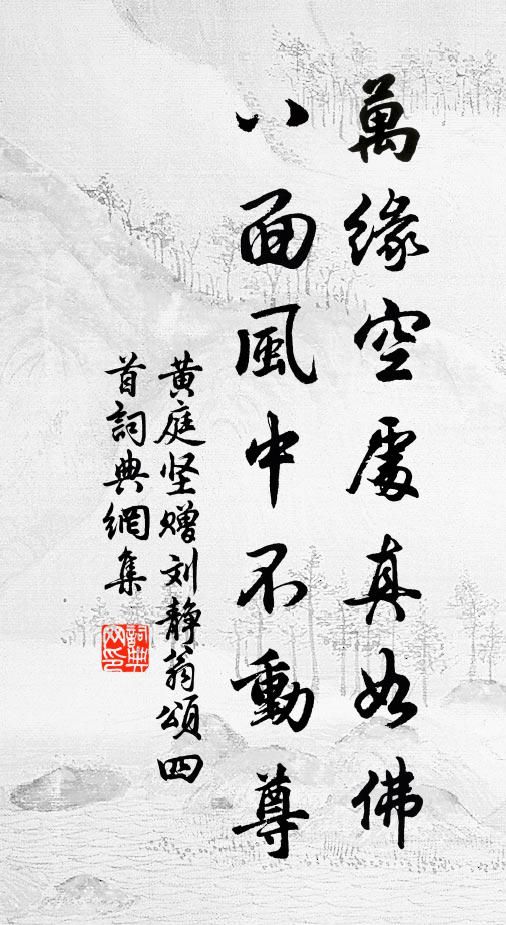 萬緣空處真如佛
八面風中不動尊
黄庭坚赠刘静翁頌四
首詞典網集
詞典
网印